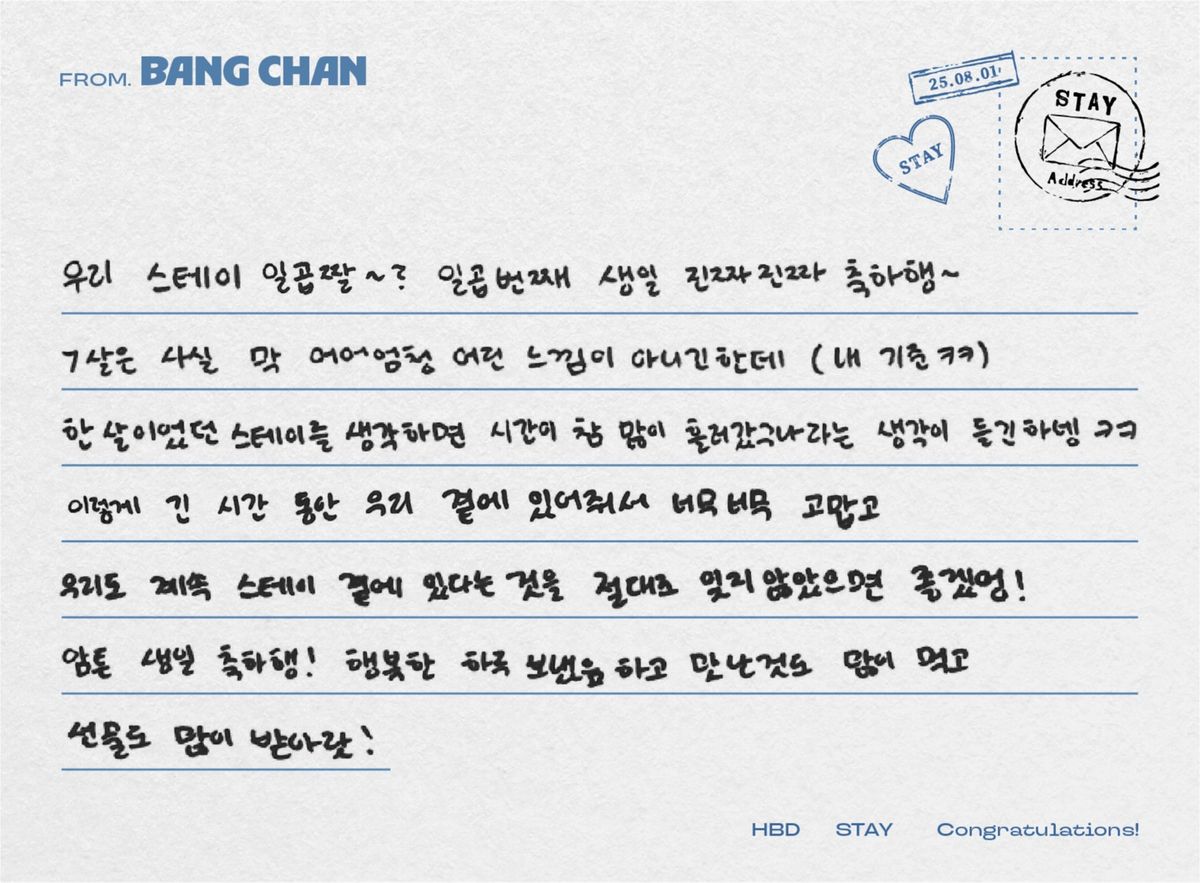 FROM. BANG CHAN
25.08.01
STAY
STAY
Address
우리 스테이 일곱짤~? 일곱번째 생일 진짜진짜 축하행~
7살은 사실 막 어어엄청 어린 느낌이 아니긴한데 (내 기준ㅋㅋ)
한살이었던 스테이를 생각하면 시간이 참 많이 흘러갔구나라는 생각이 들긴하넹 ㅋㅋ
이렇게 긴 시간 동안 우리 곁에 있어줘서 너무너무 고맙고
우리도 계속 스테이 곁에 있다는 것을 절대로 잊지않았으면 좋겠엉!
암튼 생일 축하행! 행복한 하루 보냈음하고 맛난것도 많이 먹고
선물도 많이 받아랏!
HBD STAY Congratulations!